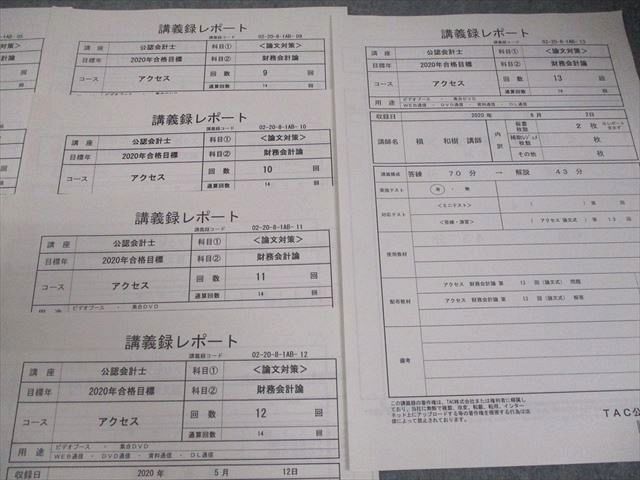 -1AB-05
講義録レポート
講義録コード 02-20-8-1AB-09
講 座 公認会計士 科目① ＜論文対策＞
目標年 2020年合格目標 科目② 財務会計論
コース アクセス 回 数 9 回
通算回数 14 回
講義録レポート
講義録コード 02-20-8-1AB-10
講 座 公認会計士 科目① ＜論文対策＞
目標年 2020年合格目標 科目② 財務会計論
コース アクセス 回 数 10 回
通算回数 14 回
講義録レポート
講義録コード 02-20-8-1AB-11
講 座 公認会計士 科目① ＜論文対策＞
目標年 2020年合格目標 科目② 財務会計論
コース アクセス 回 数 11 回
通算回数 14 回
用 途 ビデオブース ・ 集合DVD
講義録レポート
講義録コード 02-20-8-1AB-12
講 座 公認会計士 科目① ＜論文対策＞
目標年 2020年合格目標 科目② 財務会計論
コース アクセス 回 数 12 回
通算回数 14 回
用 途 ビデオブース ・ 集合DVD
WEB通信 ・ DVD通信 ・ 資料通信 ・ DL通信
収録日 2020 年 5 月 12日
講義録レポート
講義録コード 02-20-8-1AB-13
講 座 公認会計士 科目① ＜論文対策＞
目標年 2020年合格目標 科目② 財務会計論
コース アクセス 回 数 13 回
通算回数 14 回
用 途 ビデオブース ・ 集合DVD
WEB通信 ・ DVD通信 ・ 資料通信 ・ DL通信
収録日 2020 年 6 月 2日
講師名 槇 和樹 講師 内訳 板書枚数 2 枚 ※レポート含まず
補助レジュメ枚数 枚
その他 枚
講義構成 答練 70 分 → 解説 43 分
実施テスト 有 ・ 無
対応テスト ＜ミニテスト＞ ( ) 第 回
＜答練・演習＞ ( アクセス 論文式 ) 第 13 回
使用教材
配布教材 アクセス 財務会計論 第 13 回（論文式） 問題
アクセス 財務会計論 第 13 回（論文式） 解答
備考
この講義録の著作権は、TAC株式会社または権利者に帰属し
ており、当社に無断で複製、改変、転載、転用、インター
ネット上にアップロードする等の著作権を侵害する行為は法
律によって禁止されております。
TAC公